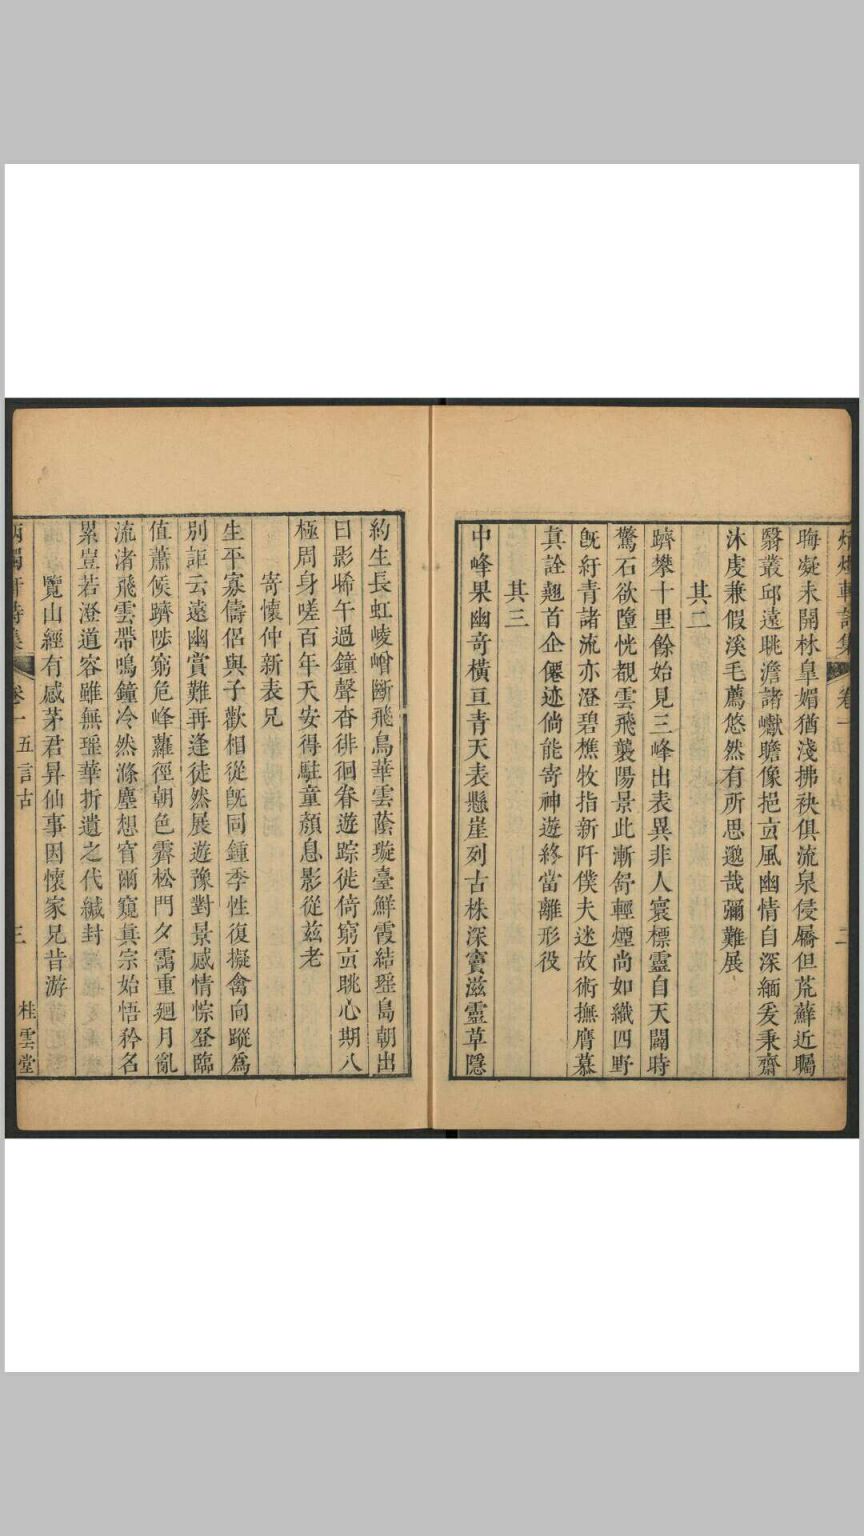 晦凝未開林皐媚猶淺拂袂俱流泉侵屩但荒蘚近矚
翳叢邱遠眺澹諸巘瞻像挹玄風幽情自深緬爰秉齋
沐虔兼假溪毛薦悠然有所思邈哉彌難展
其二
躋攀十里餘始見三峰出表異非人寰標靈自天闢時
驚石欲墮恍覩雲飛襲陽景此漸舒輕煙尚如織四野
旣紆青諸流亦澄碧樵牧指新阡僕夫迷故術撫膺慕
真詮翹首企僊迹倘能寄神遊終當離形役
其三
中峰果幽奇橫亘青天表懸崖列古株深竇滋靈草隱
約生長虹崚嶒斷飛鳥華雲蔭璇臺鮮霞結瑤島朝出
日影晞午過鐘聲杳徘徊眷遊踪徙倚窮玄眺心期八
極周身嗟百年夭安得駐童顏息影從茲老
寄懷仲新表兄
生平寡儔侶與子歡相從旣同鍾季性復擬禽向蹤爲
別詎云遠幽賞難再逢徒然展遊豫對景感情悰登臨
值蕭候躋陟窮危峰蘿徑朝色霽松門夕靄重廻月亂
流渚飛雲帶鳴鐘冷然滌塵想窅爾窺眞宗始悟矜名
累豈若澄道容雖無瑶華折遺之代緘封
覽山經有感茅君昇仙事因懷家兄昔游
卷一 五言古 三 桂雲堂